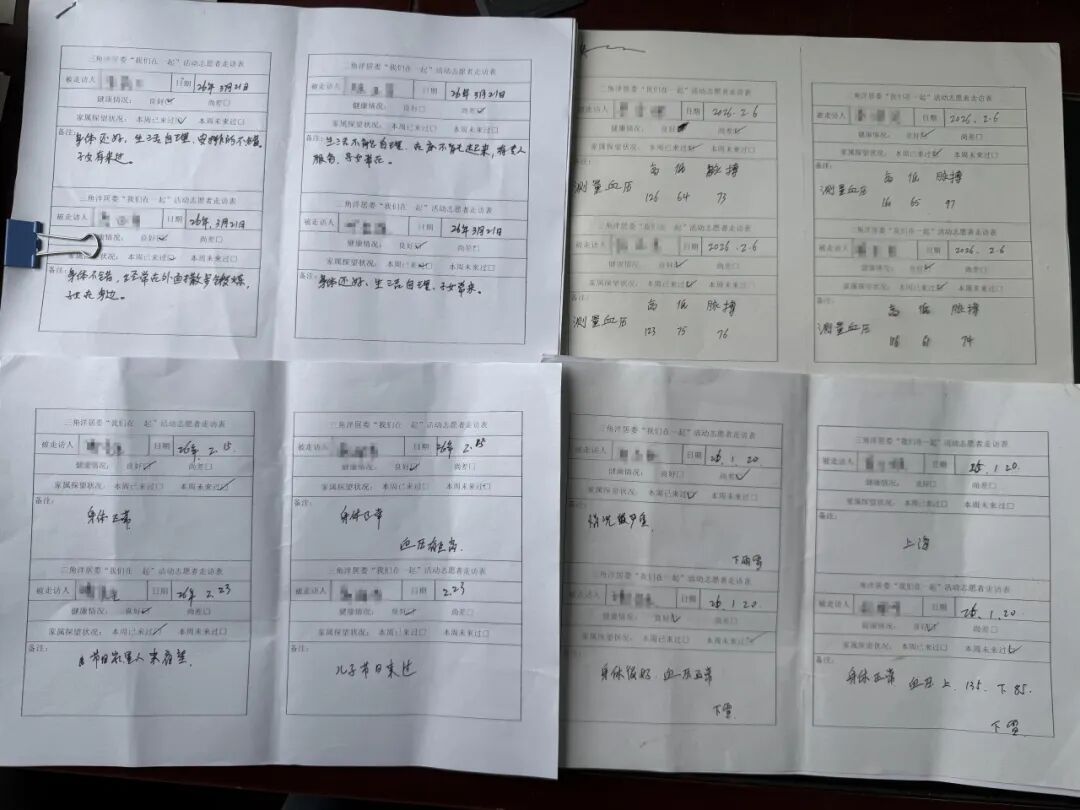 三角洋居委“我们在一起”活动志愿者走访表
被走访人 日期 26年3月21日
健康情况： 良好☑ 尚差□
家属探望状况： 本周已来过☑ 本周未来过□
备注： 身体还好、生活自理、
子女有来过
三角洋居委“我们在一起”活动志愿者走访表
被走访人 日期 26年3月21日
健康情况： 良好□ 尚差☑
家属探望状况： 本周已来过☑ 本周未来过□
备注： 生活不能自理、
服侍、子女常在。
三角洋居委“我们在一起”活动志愿者走访表
被走访人 日期 26年3月21日
健康情况： 良好☑ 尚差□
家属探望状况： 本周已来过☑ 本周未来过□
备注： 身体不错，经常在外面散步
子女在身边。
三角洋居委“我们在一起”活动志愿者走访表
被走访人 日期 26年3月21日
健康情况： 良好☑ 尚差□
家属探望状况： 本周已来过☑ 本周未来过□
备注： 身体还好、生活自理、子女常来。
三角洋居委“我们在一起”活动志愿者走访表
被走访人 日期 2026.2.6
健康情况： 良好 尚差☑
家属探望状况： 本周已来过☑ 本周未来过□
备注： 高 低 脉搏
测量血压 126 64 73
三角洋居委“我们在一起”活动志愿者走访表
被走访人 日期 2026.2.6
健康情况： 良好☑ 尚差□
家属探望状况： 本周已来过☑ 本周未来过□
备注： 高 低 脉搏
测量血压 65 97
三角洋居委“我们在一起”活动志愿者走访表
被走访人 日期 2026.2.6
健康情况： 良好☑ 尚差□
家属探望状况： 本周已来过☑ 本周未来过□
备注： 高 低 脉搏
测量血压 123 75 76
三角洋居委“我们在一起”活动志愿者走访表
被走访人 日期 2026.2.6
健康情况： 良好☑ 尚差□
家属探望状况： 本周已来过☑ 本周未来过□
备注： 高 低 脉搏
测量血压 74
三角洋居委“我们在一起”活动志愿者走访表
被走访人 日期 26年2.15
健康情况： 良好☑ 尚差□
家属探望状况： 本周已来过□ 本周未来过☑
备注：
身体正常
三角洋居委“我们在一起”活动志愿者走访表
被走访人 日期 26年2.15
健康情况： 良好☑ 尚差□
家属探望状况： 本周已来过☑ 本周未来过□
备注：
身体正常
血压有点高
三角洋居委“我们在一起”活动志愿者走访表
被走访人 日期 26年2.23
健康情况： 良好☑ 尚差□
家属探望状况： 本周已来过☑ 本周未来过□
备注：
节日家里人来看望
三角洋居委“我们在一起”活动志愿者走访表
被走访人 日期 2.23
健康情况： 良好☑ 尚差□
家属探望状况： 本周已来过□ 本周未来过□
备注：
儿子节日来过
三角洋居委“我们在一起”活动志愿者走访表
被走访人 日期 26.1.20.
健康情况： 良好□ 尚差☑
家属探望状况： 本周已来过☑ 本周未来过□
备注：
情况较严重
下雨雪
三角洋居委“我们在一起”活动志愿者走访表
被走访人 日期 26.1.20.
健康情况： 良好□ 尚差□
家属探望状况： 本周已来过□ 本周未来过□
备注：
上海
三角洋居委“我们在一起”活动志愿者走访表
被走访人 日期 26.1.20.
健康情况： 良好☑ 尚差□
家属探望状况： 本周已来过□ 本周未来过☑
备注：
身体很好、血压正常
下雪
三角洋居委“我们在一起”活动志愿者走访表
被走访人 日期 26.1.20.
健康情况： 良好☑ 尚差□
家属探望状况： 本周已来过□ 本周未来过☑
备注：
身体正常 血压 上. 135. 下 85.
下雪